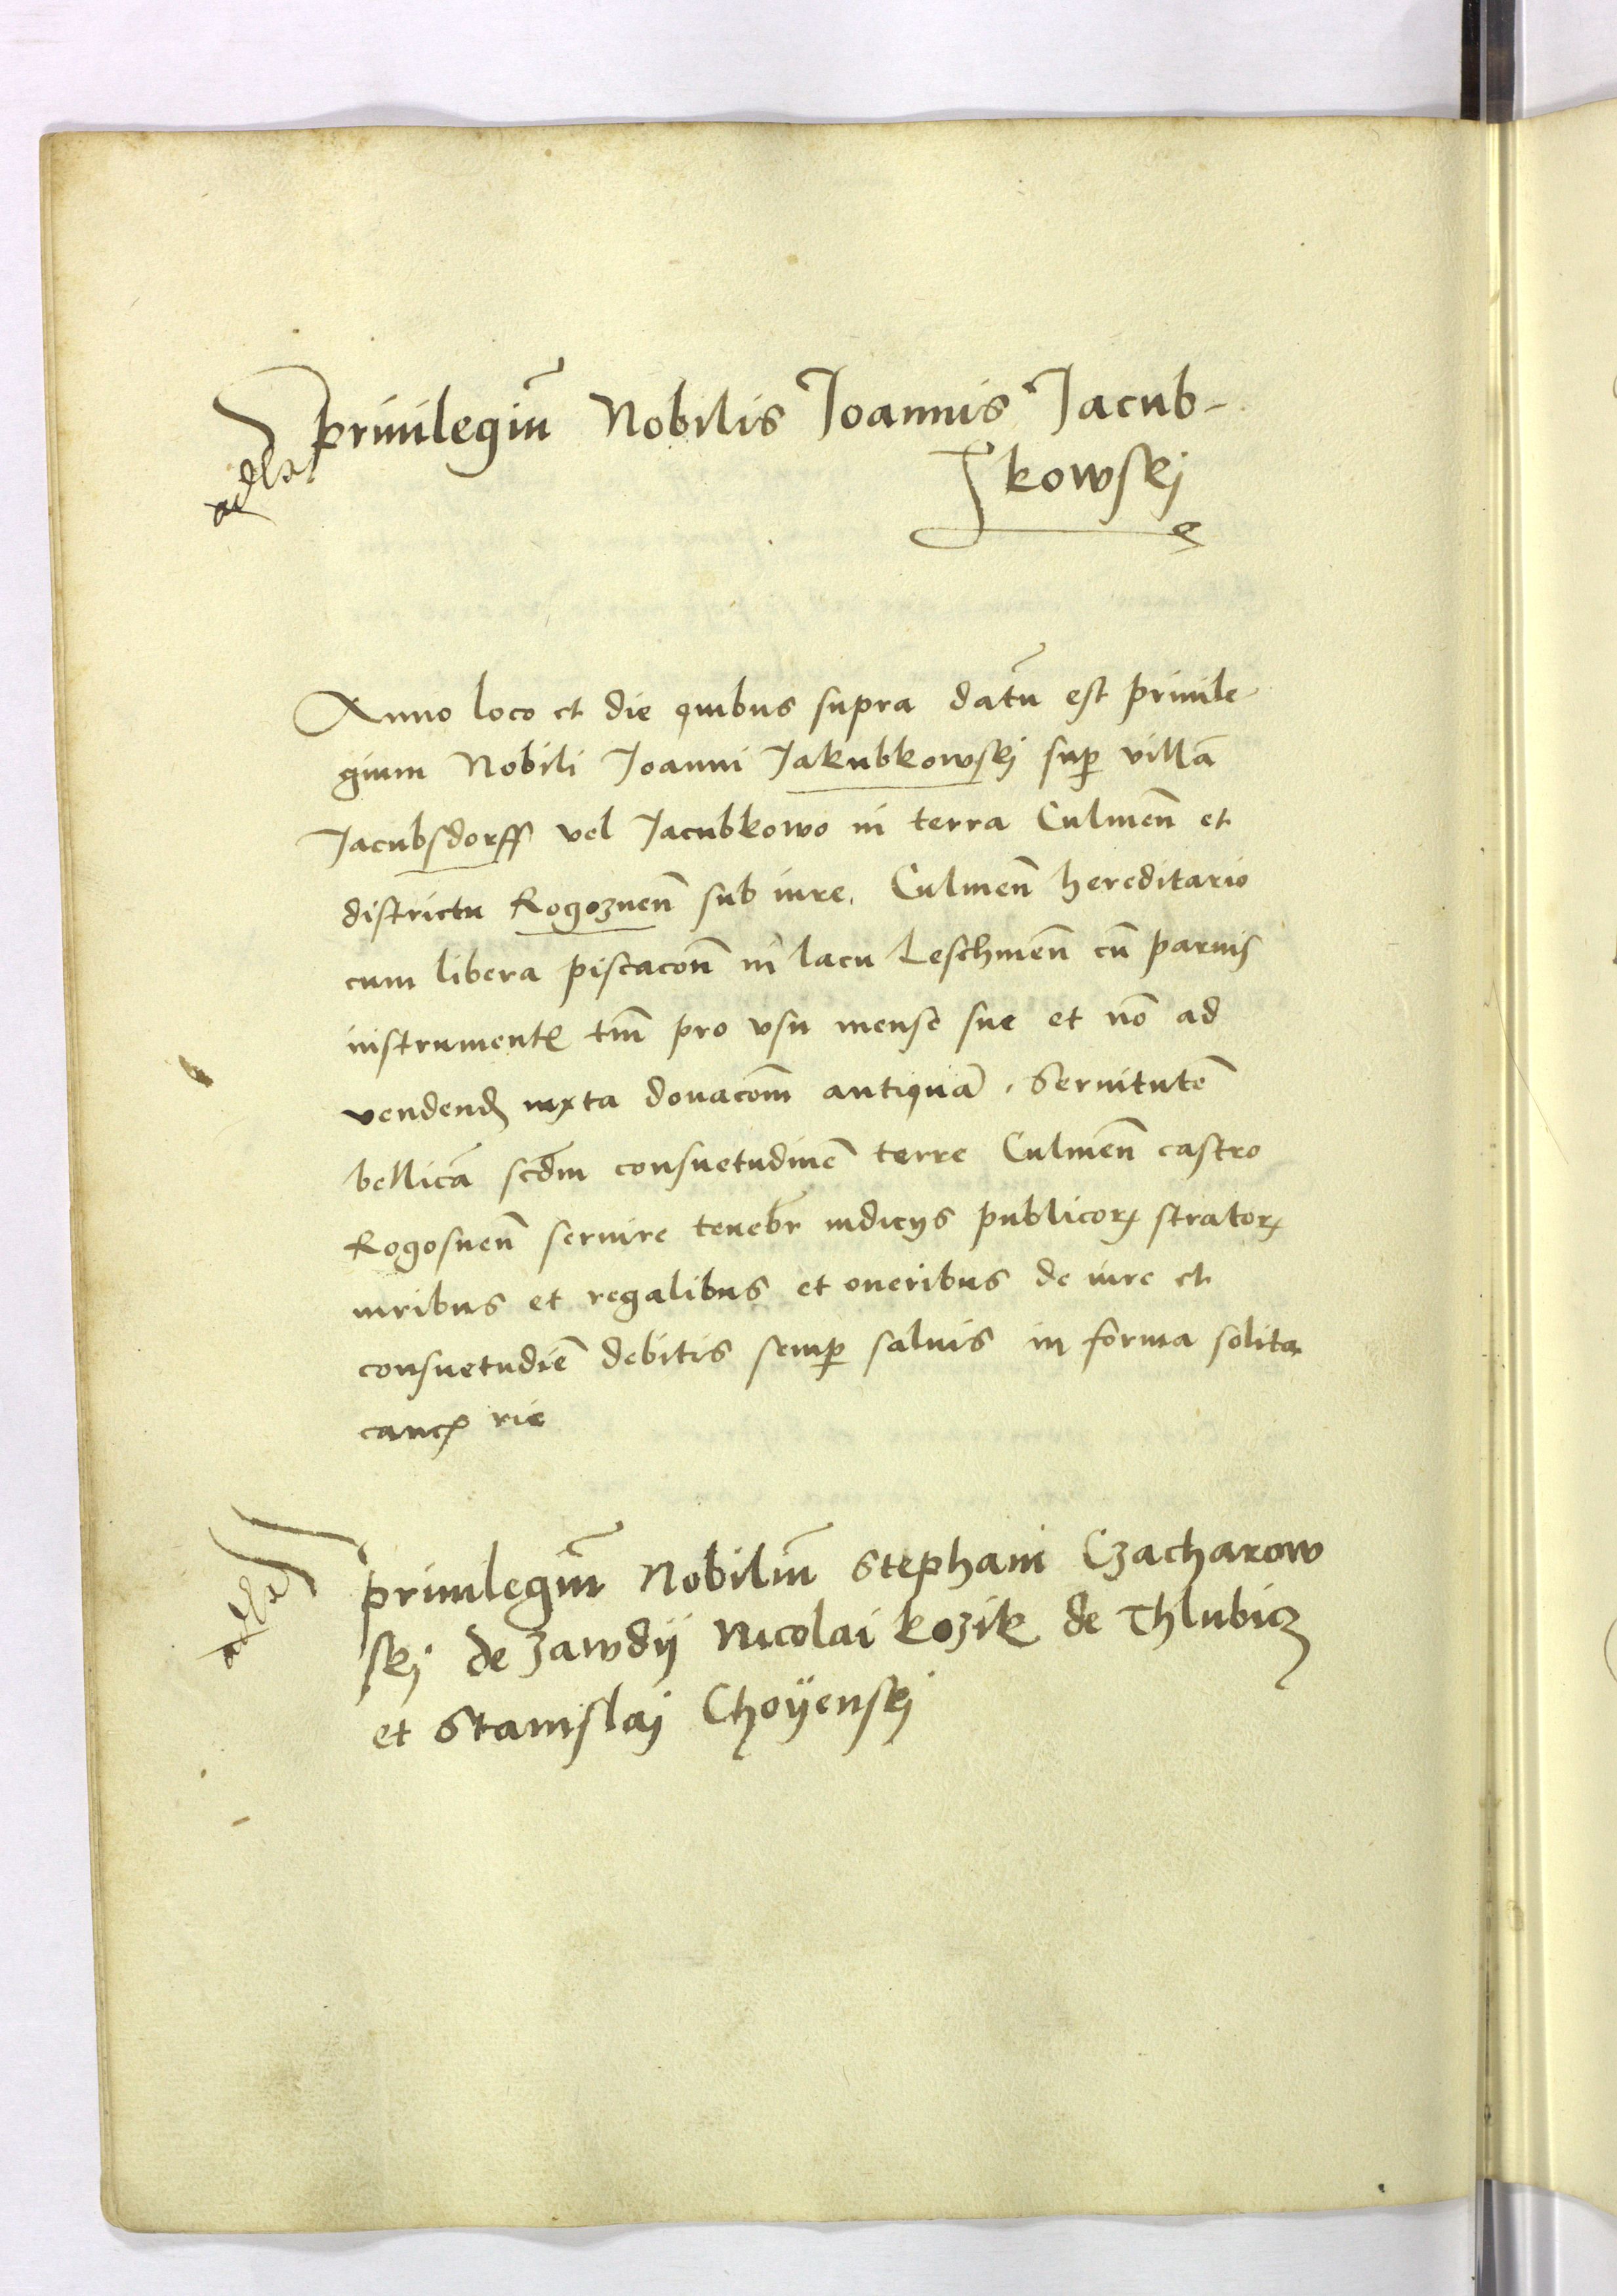 Priuilegiũ Nobilis Joannis Jacub-
kowskj
Anno loco et die quibus supra datũ est priuile
gium Nobili Joanni Jakubkowskj sup villã
Jacubsdorff vel Jacubkowo in terra Culmeñ et
districtu Rogozneñ sub iure Culmeñ hereditario
cum libera piscacoñ in lacu Leschmeñ cũ paruis
instrument tm̃ pro vsu mense sue et nõ ad
vendend iuxta donacom̃ antiquã. Seruitutẽ
bellicã scdm̃ consuetudinẽ terre Culmeñ castro
Rogosneñ seruire tenebr̃ iudicijs publicoꝝ stratoꝝ
iuribus et regalibus et oneribus de iure et
consuetudiẽ debitis semp saluis in forma solita
canc rie
Priuilegiũ Nobiliũ Stephani Czacharow
skj de Zawdij Nicolai Kozik de Thlubicz
et Stanislaj Choÿenskj